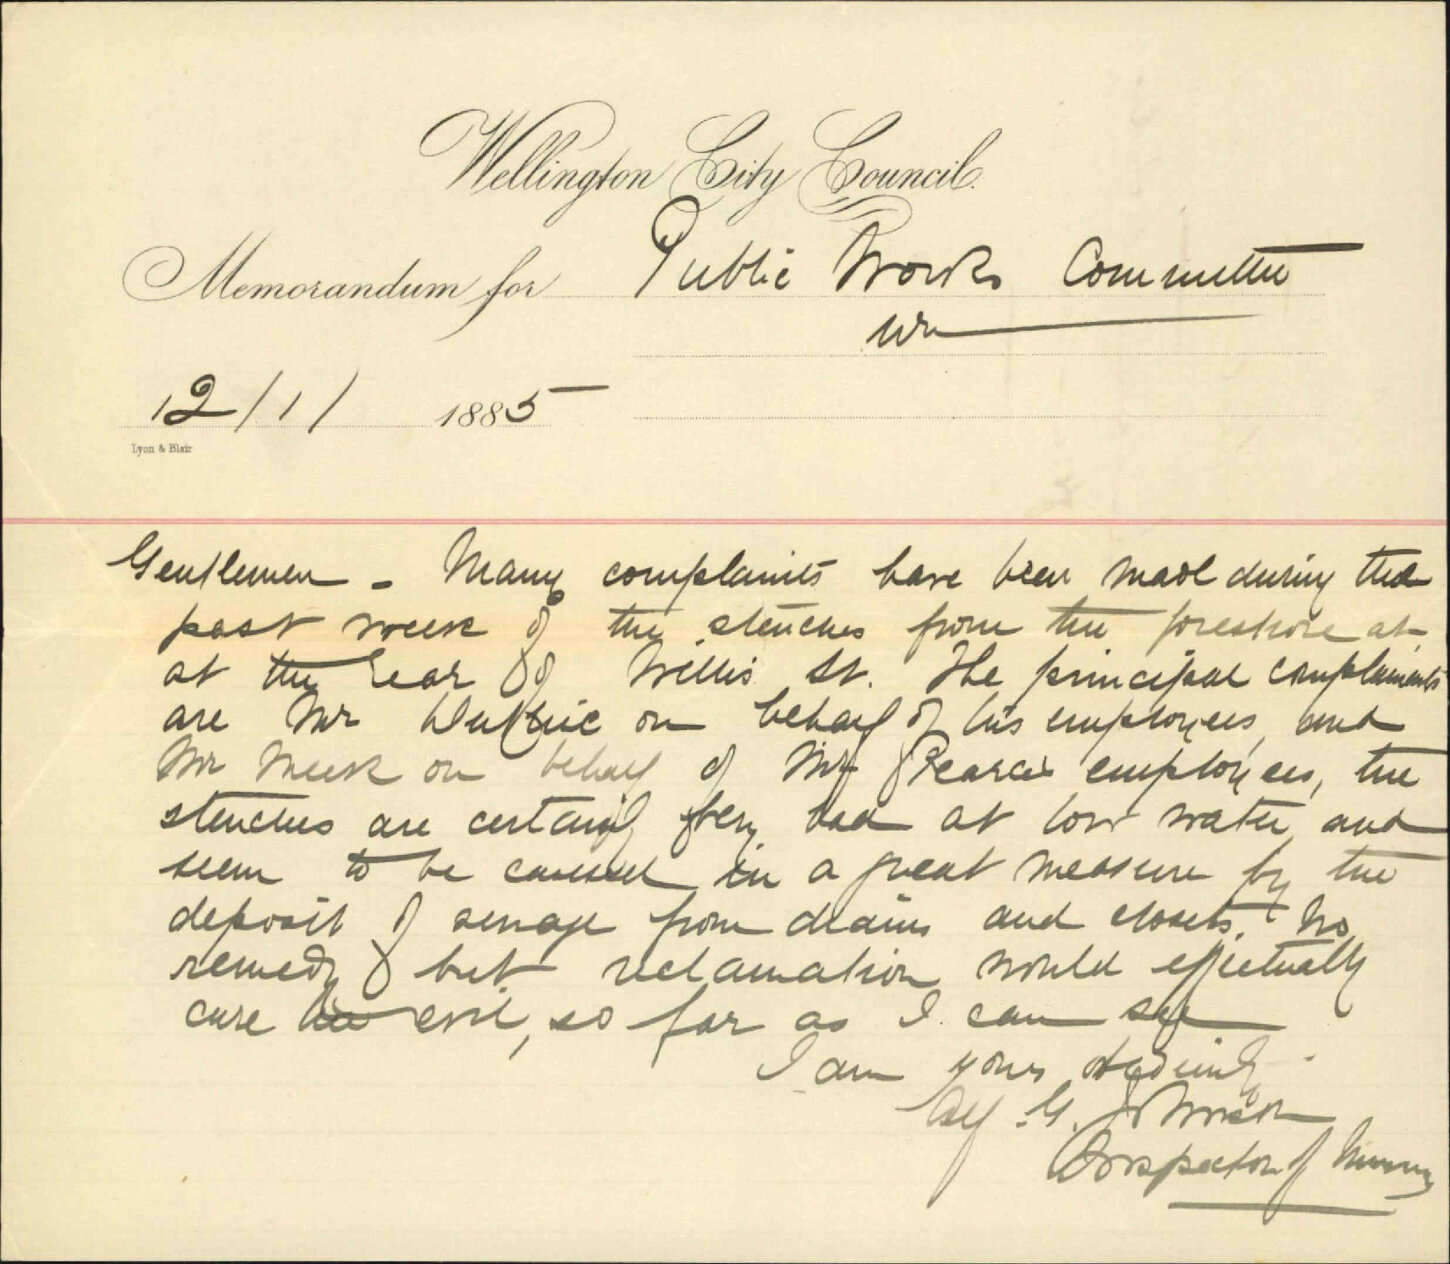 Wellington City Council.
Memorandum for Public Works Committee
12/11/ 1885
Lyon & Blair
Gentlemen - Many complaints have been made during the
past week of the stenches from the foreshore at
at the rear of Willis St. The principal complainants
are Mr Duthie on behalf of his employees, and
Mr Meek on behalf of Mr Pearce's employees, the
stenches are certainly very bad at low water and
seem to be caused in a great measure by the
deposit of sewage from drains and closets. No
remedy but reclamation would effectually
cure the evil, so far as I can see
I am yours obediently
Alf. G. Johnson
Inspector of Nuisances